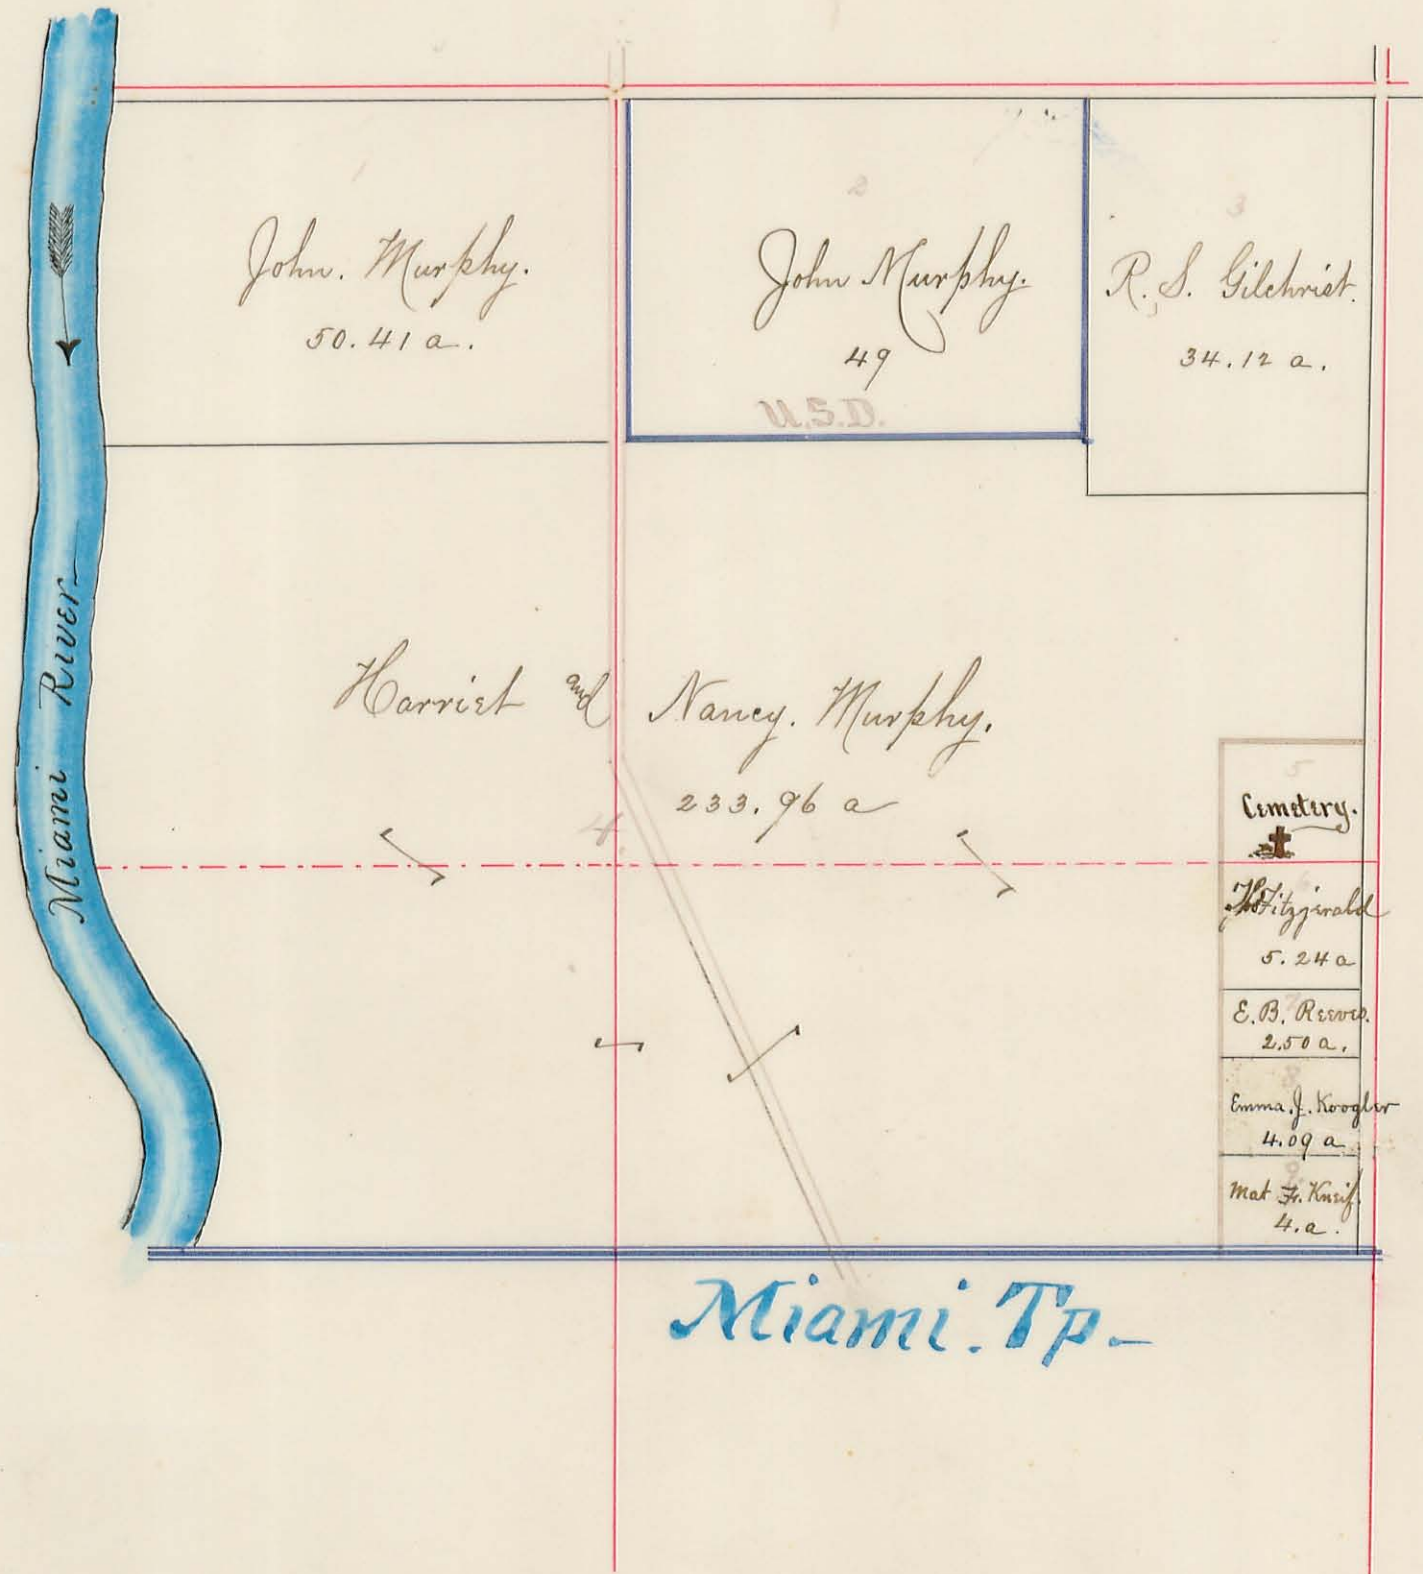 1
John. Murphy.
50.41 a.
2
John Murphy.
49
U.S.D.
3
R. S. Gilchrist.
34.12 a.
Miami River
Harriet and Nancy. Murphy.
233.96 a
4
5
Cemetery.
6
Fitzjerald
5.24 a
7
E. B. Reeves.
2.50 a.
8
Emma. J. Koogler
4.09 a
9
Mat Fr. Kneif.
4. a.
Miami. Tp-